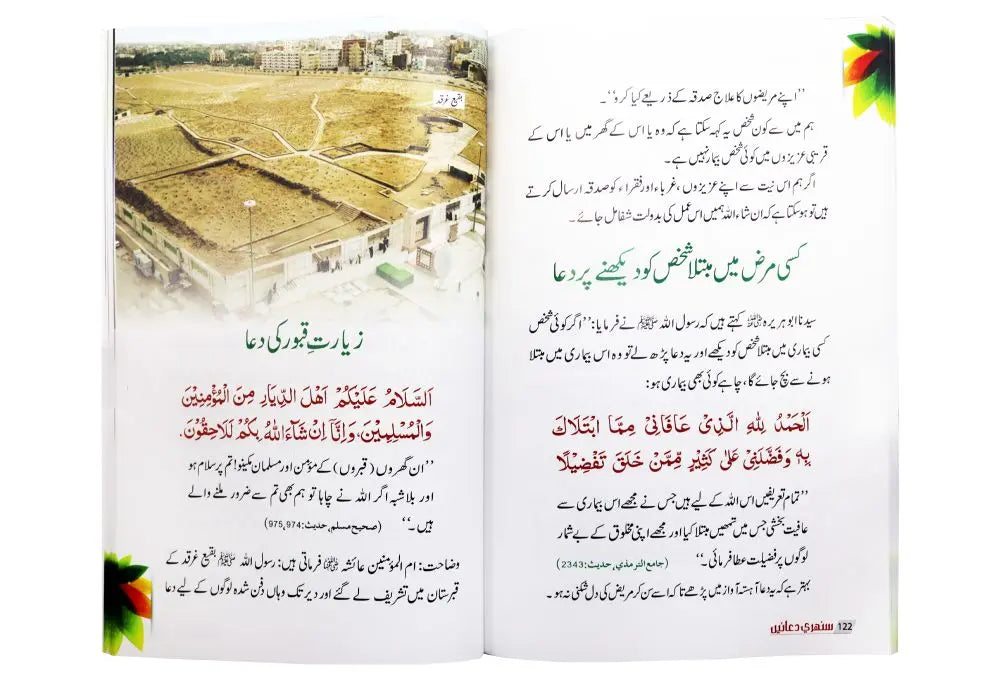 ’’اپنے مریضوں کا علاج صدقہ کے ذریعے کیا کرو‘‘۔
ہم میں سے کون شخص یہ کہہ سکتا ہے کہ وہ یا اس کے گھر میں یا اس کے
قریبی عزیزوں میں کوئی شخص بیمار نہیں ہے۔
اگر ہم اس نیت سے اپنے عزیزوں، غرباء اور فقراء کو صدقہ ارسال کرتے
ہیں تو ہو سکتا ہے کہ ان شاء اللہ ہمیں اس عمل کی بدولت شفا مل جائے۔
کسی مرض میں مبتلا شخص کو دیکھنے پر دعا
سیدنا ابو ہریرہ رضی اللہ عنہ کہتے ہیں کہ رسول اللہ ﷺ نے فرمایا: ’’اگر کوئی شخص
کسی بیماری میں مبتلا شخص کو دیکھے اور یہ دعا پڑھ لے تو وہ اس بیماری میں مبتلا
ہونے سے بچ جائے گا، چاہے کوئی بھی بیماری ہو:
اَلْحَمْدُ لِلّٰهِ الَّذِیْ عَافَانِیْ مِمَّا ابْتَلَاكَ
بِهٖ وَفَضَّلَنِیْ عَلٰی كَثِیْرٍ مِّمَّنْ خَلَقَ تَفْضِیْلًا
’’تمام تعریفیں اس اللہ کے لیے ہیں جس نے مجھے اس بیماری سے
عافیت بخشی جس میں تمہیں مبتلا کیا اور مجھے اپنی مخلوق کے بے شمار
لوگوں پر فضیلت عطا فرمائی۔‘‘ (جامع الترمذي، حدیث: 2343)
بہتر ہے کہ یہ دعا آہستہ آواز میں پڑھے تاکہ اسے سن کر مریض کی دل شکنی نہ ہو۔
122 سنهري دعائيں
بقیع غرقد
زیارتِ قبور کی دعا
اَلسَّلَامُ عَلَیْكُمْ اَهْلَ الدِّیَارِ مِنَ الْمُؤْمِنِیْنَ
وَالْمُسْلِمِیْنَ، وَاِنَّآ اِنْ شَآءَ اللّٰهُ بِكُمْ لَلَاحِقُوْنَ.
’’ان گھروں (قبروں) کے مؤمن اور مسلمان مکینو! تم پر سلام ہو
اور بلاشبہ اگر اللہ نے چاہا تو ہم بھی تم سے ضرور ملنے والے
ہیں۔‘‘ (صحیح مسلم، حدیث: 974، 975)
وضاحت: ام المؤمنین عائشہ رضی اللہ عنہا فرماتی ہیں: رسول اللہ ﷺ بقیع غرقد کے
قبرستان میں تشریف لے گئے اور دیر تک وہاں دفن شدہ لوگوں کے لیے دعا